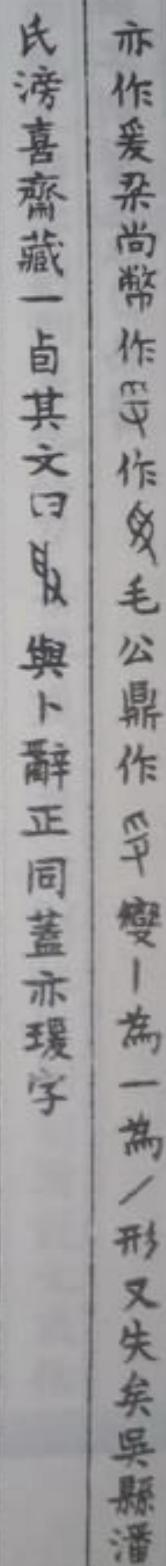 亦作爰梁尚幣作作毛公鼎作變丨為一為丿形又失矣吳縣潘
氏滂喜齋藏一卣其文曰與卜辭正同蓋亦瑗字